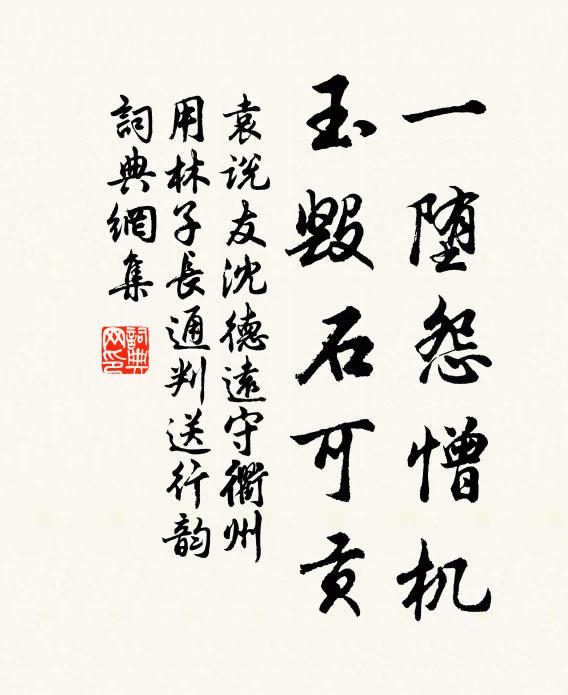 一堕怨憎机
玉毁石可贡
袁说友沈德远守衢州
用林子長通判送行韵
詞典網集
詞典
网印